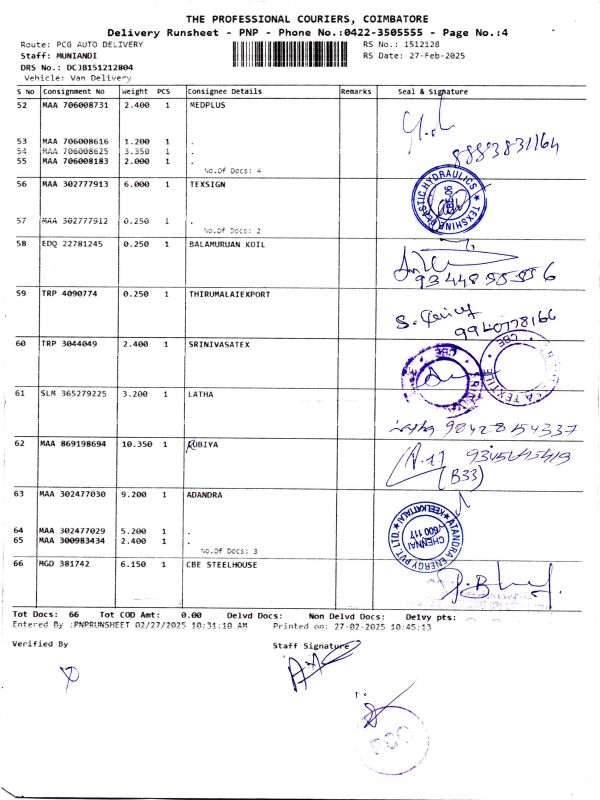 THE PROFESSIONAL COURIERS, COIMBATORE
Delivery Runsheet - PNP - Phone No.:0422-3505555 - Page No.:4
Route: PCG AUTO DELIVERY RS No.: 1512128
Staff: MUNIANDI RS Date: 27-Feb-2025
DRS No.: DCJB151212804
Vehicle: Van Delivery
S No Consignment No Weight PCS Consignee Details Remarks Seal & Signature
52 MAA 706008731 2.400 1 MEDPLUS
8883831164
53 MAA 706008616 1.200 1 .
54 MAA 706008625 3.350 1 .
55 MAA 706008183 2.000 1 .
No.Of Docs: 4
56 MAA 302777913 6.000 1 TEXSIGN
57 MAA 302777912 0.250 1 .
No.Of Docs: 2
58 EDQ 22781245 0.250 1 BALAMURUAN KOIL
59 TRP 4090774 0.250 1 THIRUMALAIEXPORT
9940778166
60 TRP 3044049 2.400 1 SRINIVASATEX
CBE
61 SLM 365279225 3.200 1 LATHA
98428154337
62 MAA 869198694 10.350 1 RUBIYA
(B33)
63 MAA 302477030 9.200 1 ADANDRA
ATANDRA ENERGY PVT. LTD. KEELKATTALAI
CHENNAI
600 117
64 MAA 302477029 5.200 1 .
65 MAA 300983434 2.400 1 .
No.Of Docs: 3
66 MGD 381742 6.150 1 CBE STEELHOUSE
Tot Docs: 66 Tot COD Amt: 0.00 Delvd Docs: Non Delvd Docs: Delvy pts:
Entered By :PNPRUNSHEET 02/27/2025 10:31:10 AM Printed on: 27-02-2025 10:45:13
Verified By Staff Signature